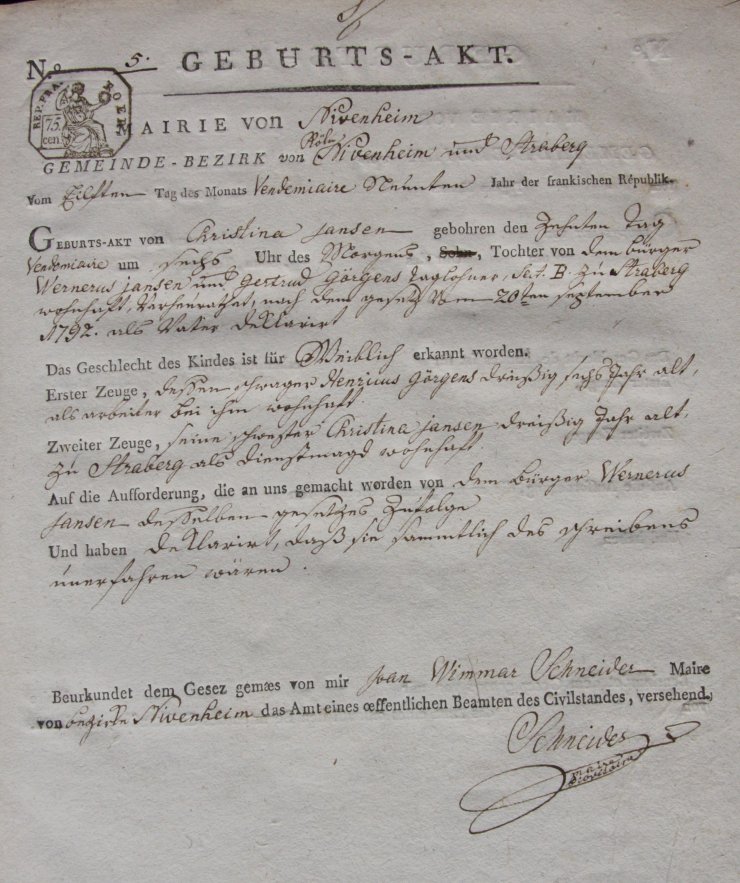 No 5. GEBURTS-AKT.
REP. FRA. ROER
75 cen.
MAIRIE von Nivenheim
Röln
GEMEINDE-BEZIRK von Nivenheim und Straberg
Vom Eilften Tag des Monats Vendemiaire Neunten Jahr der frankischen Républik.
GEBURTS-AKT von Christina Jansen gebohren den Zehnten Tag
Vendemiaire um sechs Uhr des Morgens, Sohn, Tochter von dem bürger
Wernerus Jansen und Gertrud Görgens taglohner, Sect. B. zu Straberg
wohnhaft, Verheurathet, nach dem gesetz Vom 20ten september
1792. als Vater deklarirt
Das Geschlecht des Kindes ist für Weiblich erkannt worden.
Erster Zeuge, dessen schwager Henricus Görgens dreißig sechs Jahr alt,
als arbeiter bei ihm wohnhaft.
Zweiter Zeuge, seine schwester Christina Jansen dreißig Jahr alt,
zu Straberg als dienstmagd wohnhaft.
Auf die Aufforderung, die an uns gemacht worden von dem bürger Wernerus
Jansen desselben gesetzes zufolge
Und haben deklarirt, daß sie sammtlich des schreibens
unerfahren wären.
Beurkundet dem Gesez gemæs von mir Joan Wimmar Schneider Maire
von bezirk Nivenheim das Amt eines œffentlichen Beamten des Civilstandes, versehend.
Schneider
Maire